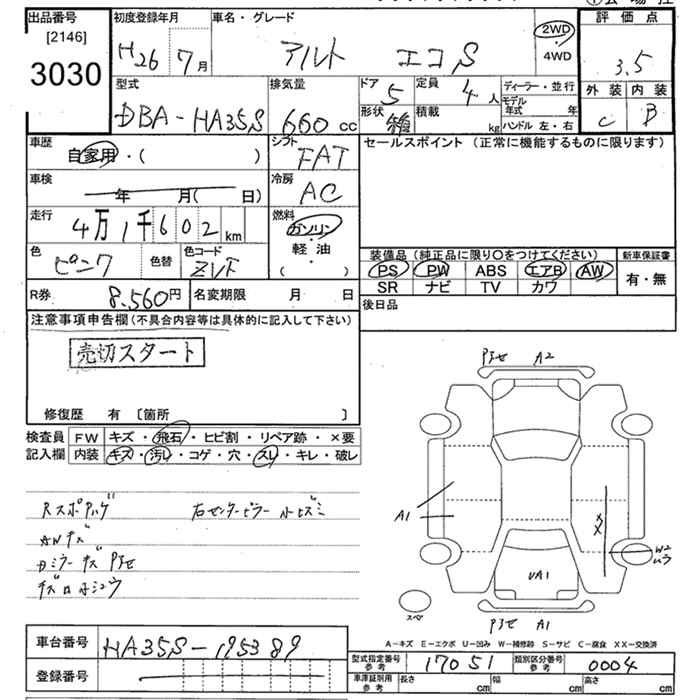 出品番号 初度登録年月 車名・グレード 評価点
[2146] H26 7月 アルト エコS 2WD・ 3.5
3030 4WD
外装 内装
型式 排気量 ドア 定員 ディーラー・並行 C B
DBA-HA35S 660cc 5 4人 モデル年式 年
形状 積載 kg ハンドル 左・右
車歴 シフト セールスポイント (正常に機能するものに限ります)
自家用・( ) FAT
車検 冷房
年 月( 日) AC
走行 燃料
4万1千602km ガソリン・
軽・油・
( )
色 色替 色コード 装備品 (純正品に限り○をつけてください) 新車保証書
ピンク ZVF PS PW ABS エアB AW 有・無
SR ナビ TV カワ
R券 8.560円 名変期限 月 日 後日品
注意事項申告欄(不具合内容等は具体的に記入して下さい)
売切スタート
修復歴 有 〔箇所 〕
検査員 FW キズ・飛石・ヒビ割・リペア跡・×要
記入欄 内装 キズ・汚レ・コゲ・穴・スレ・キレ・破レ
Pjセ A2
Rスポアハゲ 右センターピラー小ヒズミ
ANキズ
Dミラーキズ Pjセ
A1
××
W2
ムラ
UA1
スペ
Pjセ A1
A-キズ E-エクボ U-凹み W-補修跡 S-サビ C-腐食 XX-交換済
車台番号 HA35S-195389
登録番号
型式指定番号 参考 17051 類別区分番号 参考 0004
車庫証明用 参考 長さ cm 幅 cm 高さ cm